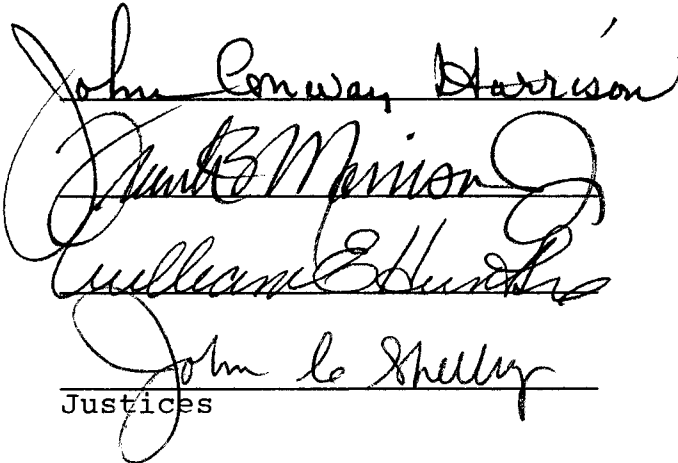 John Conway Harrison
Frank B Morrison Jr
William E Hunt Sr
John C Sheehy
Justices